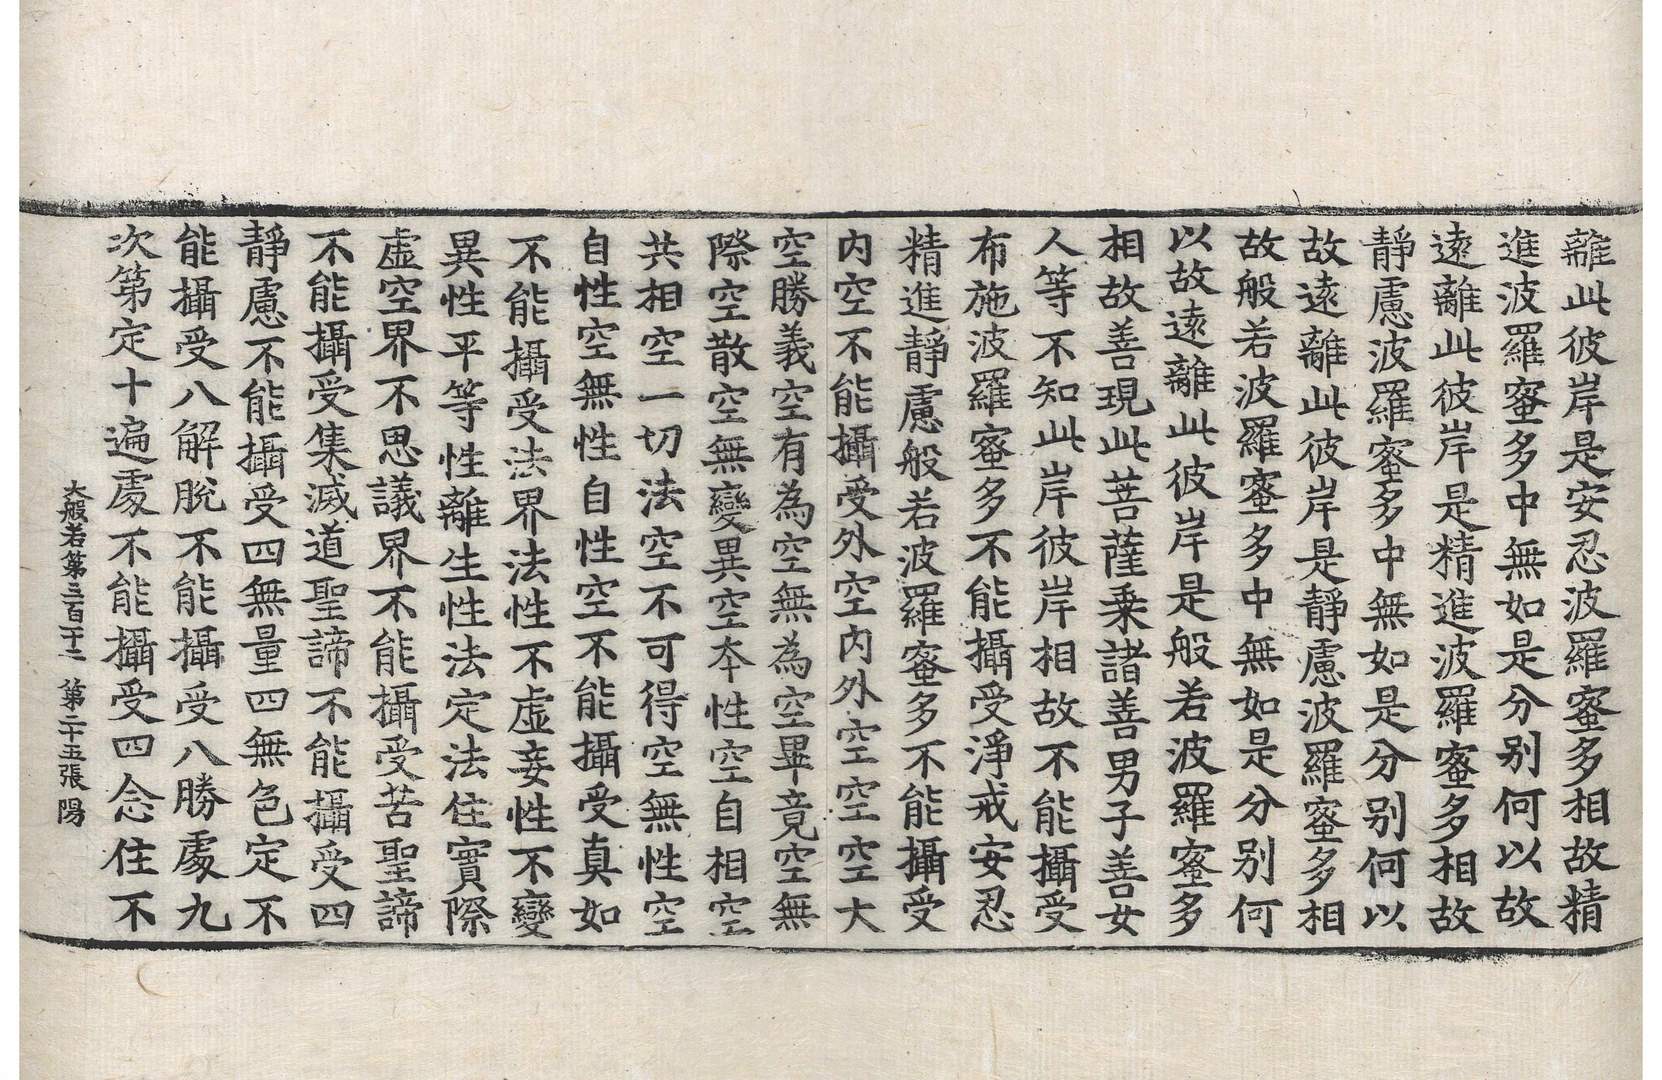 離此彼岸是安忍波羅蜜多相故精
進波羅蜜多中無如是分别何以故
遠離此彼岸是精進波羅蜜多相故
靜慮波羅蜜多中無如是分别何以
故遠離此彼岸是靜慮波羅蜜多相
故般若波羅蜜多中無如是分别何
以故遠離此彼岸是般若波羅蜜多
相故善現此菩薩乘諸善男子善女
人等不知此岸彼岸相故不能攝受
布施波羅蜜多不能攝受淨戒安忍
精進靜慮般若波羅蜜多不能攝受
内空不能攝受外空内外空空空大
空勝義空有為空無為空畢竟空無
際空散空無變異空本性空自相空
共相空一切法空不可得空無性空
自性空無性自性空不能攝受真如
不能攝受法界法性不虛妄性不變
異性平等性離生性法定法住實際
虛空界不思議界不能攝受苦聖諦
不能攝受集滅道聖諦不能攝受四
靜慮不能攝受四無量四無色定不
能攝受八解脫不能攝受八勝處九
次第定十遍處不能攝受四念住不
大般若第三百十二 第二十五張 陽